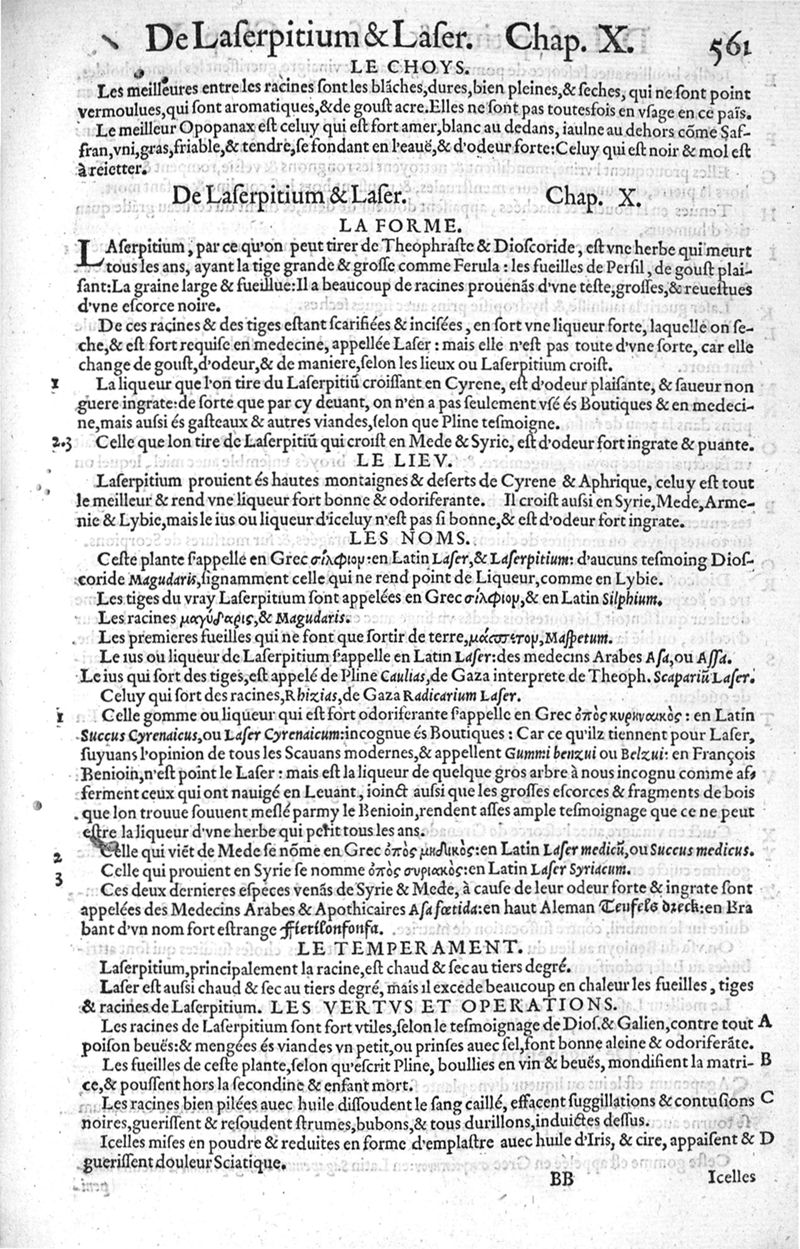 De Laſerpitium & Laſer. Chap. X. 561
LE CHOYS.
Les meilleures entre les racines ſont les blãches, dures, bien pleines, & ſeches, qui ne ſont point
vermoulues, qui ſont aromatiques, & de gouſt acre. Elles ne ſont pas toutesfois en vſage en ce païs.
Le meilleur Opopanax eſt celuy qui eſt fort amer, blanc au dedans, iaulne au dehors cõme Saf-
fran, vni, gras, friable, & tendre, ſe fondant en l'eauë, & d'odeur forte: Celuy qui eſt noir & mol eſt
à reietter.
De Laſerpitium & Laſer. Chap. X.
LA FORME.
LAſerpitium, par ce qu'on peut tirer de Theophraſte & Dioſcoride, eſt vne herbe qui meurt
tous les ans, ayant la tige grande & groſſe comme Ferula: les fueilles de Perſil, de gouſt plai-
ſant: La graine large & fueillue: Il a beaucoup de racines prouenãs d'vne teſte, groſſes, & reueſtues
d'vne eſcorce noire.
De ces racines & des tiges eſtant ſcarifiées & inciſées, en ſort vne liqueur forte, laquelle on ſe-
che, & eſt fort requiſe en medecine, appellée Laſer: mais elle n'eſt pas toute d'vne ſorte, car elle
change de gouſt, d'odeur, & de maniere, ſelon les lieux ou Laſerpitium croiſt.
1 La liqueur que l'on tire du Laſerpitiũ croiſſant en Cyrene, eſt d'odeur plaiſante, & ſaueur non
guere ingrate: de ſorte que par cy deuant, on n'en a pas ſeulement vſé és Boutiques & en medeci-
ne, mais auſſi és gaſteaux & autres viandes, ſelon que Pline teſmoigne.
2.3 Celle que lon tire de Laſerpitiũ qui croiſt en Mede & Syrie, eſt d'odeur fort ingrate & puante.
LE LIEV.
Laſerpitium prouient és hautes montaignes & deſerts de Cyrene & Aphrique, celuy eſt tout
le meilleur & rend vne liqueur fort bonne & odoriferante. Il croiſt auſſi en Syrie, Mede, Arme-
nie & Lybie, mais le ius ou liqueur d'iceluy n'eſt pas ſi bonne, & eſt d'odeur fort ingrate.
LES NOMS.
Ceſte plante ſ'appelle en Grec σίλφιομ: en Latin Laſer, & Laſerpitium: d'aucuns teſmoing Dioſ-
coride Magudaris, ſignamment celle qui ne rend point de Liqueur, comme en Lybie.
Les tiges du vray Laſerpitium ſont appelées en Grec σίλφιομ, & en Latin Silphium.
Les racines μαγύδαρις, & Magudaris.
Les premieres fueilles qui ne font que ſortir de terre, μάσπετομ, Maſpetum.
Le ius ou liqueur de Laſerpitium ſ'appelle en Latin Laſer: des medecins Arabes Aſa, ou Aſſa.
Le ius qui ſort des tiges, eſt appelé de Pline Caulias, de Gaza interprete de Theoph. Scapariũ Laſer.
Celuy qui ſort des racines, Rhizias, de Gaza Radicarium Laſer.
1 Celle gomme ou liqueur qui eſt fort odoriferante ſ'appelle en Grec ὀπὸς κυρηναικὸς: en Latin
Succus Cyrenaicus, ou Laſer Cyrenaicum: incognue és Boutiques: Car ce qu'ilz tiennent pour Laſer,
ſuyuans l'opinion de tous les Scauans modernes, & appellent Gummi benzui ou Belzui: en François
Benioin, n'eſt point le Laſer: mais eſt la liqueur de quelque gros arbre à nous incognu comme aſ-
ferment ceux qui ont nauigé en Leuant, ioinct auſſi que les groſſes eſcorces & fragments de bois
que lon trouue ſouuent meſlé parmy le Benioin, rendent aſſes ample teſmoignage que ce ne peut
eſtre la liqueur d'vne herbe qui perit tous les ans.
2 Celle qui viẽt de Mede ſe nõme en Grec ὀπὸς μηδικὸς: en Latin Laſer medicũ, ou Succus medicus.
3 Celle qui prouient en Syrie ſe nomme ὀπὸς συριακὸς: en Latin Laſer Syriacum.
Ces deux dernieres eſpeces venãs de Syrie & Mede, à cauſe de leur odeur forte & ingrate ſont
appelées des Medecins Arabes & Apothicaires Aſa fœtida: en haut Aleman Teufels dreck: en Bra
bant d'vn nom fort eſtrange Fierilonfonfa.
LE TEMPERAMENT.
Laſerpitium, principalement la racine, eſt chaud & ſec au tiers degré.
Laſer eſt auſſi chaud & ſec au tiers degré, mais il excede beaucoup en chaleur les fueilles, tiges
& racines de Laſerpitium. LES VERTVS ET OPERATIONS.
Les racines de Laſerpitium ſont fort vtiles, ſelon le teſmoignage de Dioſ. & Galien, contre tout A
poiſon beuës: & mengées és viandes vn petit, ou prinſes auec ſel, font bonne aleine & odoriferãte.
Les fueilles de ceſte plante, ſelon qu'eſcrit Pline, boullies en vin & beuës, mondifient la matri- B
ce, & pouſſent hors la ſecondine & enfant mort.
Les racines bien pilées auec huile diſſoudent le ſang caillé, effacent ſuggillations & contuſions C
noires, gueriſſent & reſoudent ſtrumes, bubons, & tous durillons, induictes deſſus.
Icelles miſes en poudre & reduites en forme d'emplaſtre auec huile d'Iris, & cire, appaiſent & D
gueriſſent douleur Sciatique.
BB Icelles